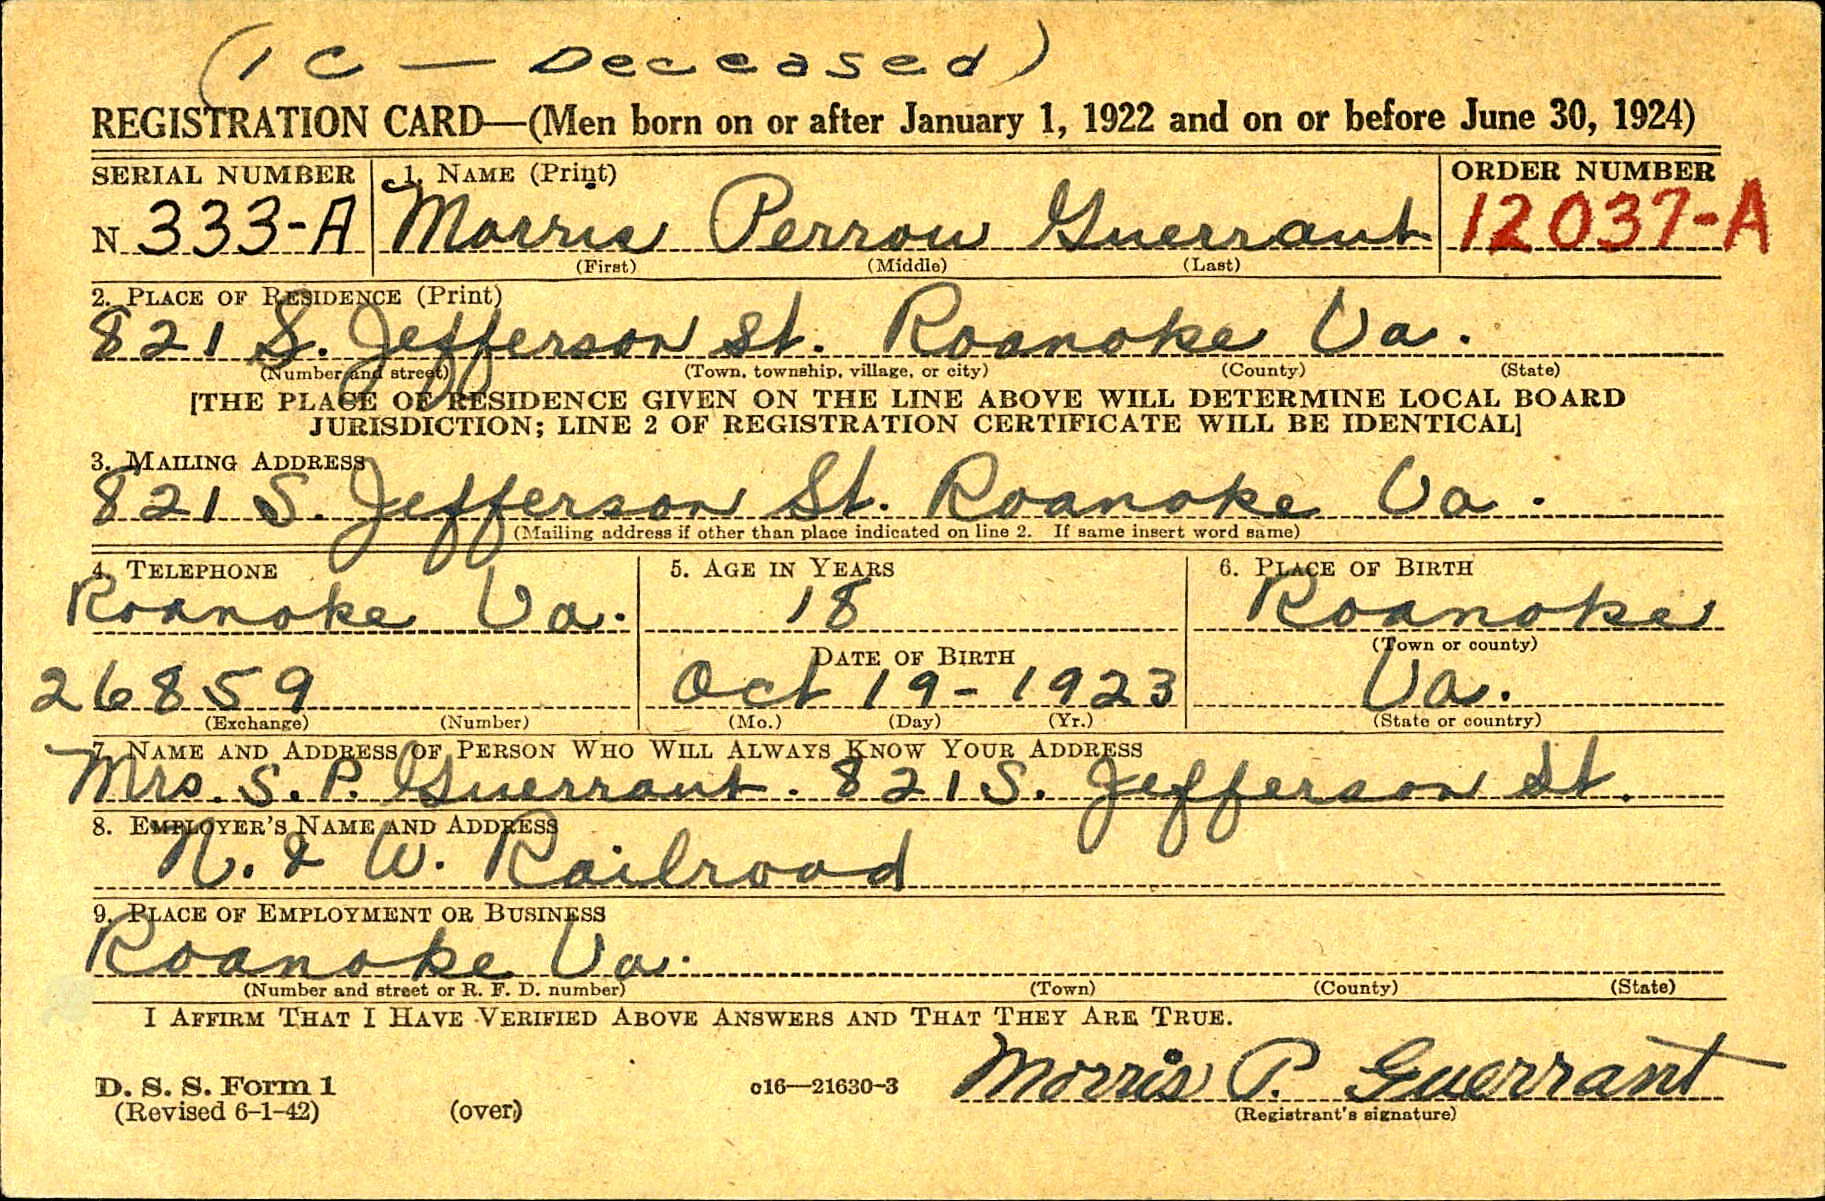 (1C — Deceased)
REGISTRATION CARD—(Men born on or after January 1, 1922 and on or before June 30, 1924)
SERIAL NUMBER
1. NAME (Print)
ORDER NUMBER
N 333-A
Morris Perrow Guerrant
12037-A
(First) (Middle) (Last)
2. PLACE OF RESIDENCE (Print)
821 S. Jefferson St. Roanoke Va.
(Number and street) (Town, township, village, or city) (County) (State)
[THE PLACE OF RESIDENCE GIVEN ON THE LINE ABOVE WILL DETERMINE LOCAL BOARD
JURISDICTION; LINE 2 OF REGISTRATION CERTIFICATE WILL BE IDENTICAL]
3. MAILING ADDRESS
821 S. Jefferson St. Roanoke Va.
(Mailing address if other than place indicated on line 2. If same insert word same)
4. TELEPHONE
Roanoke Va.
26859
(Exchange) (Number)
5. AGE IN YEARS
18
DATE OF BIRTH
Oct 19-1923
(Mo.) (Day) (Yr.)
6. PLACE OF BIRTH
Roanoke
(Town or county)
Va.
(State or country)
7. NAME AND ADDRESS OF PERSON WHO WILL ALWAYS KNOW YOUR ADDRESS
Mrs. S. P. Guerrant. 821 S. Jefferson St.
8. EMPLOYER'S NAME AND ADDRESS
N. & W. Railroad
9. PLACE OF EMPLOYMENT OR BUSINESS
Roanoke Va.
(Number and street or R. F. D. number) (Town) (County) (State)
I AFFIRM THAT I HAVE VERIFIED ABOVE ANSWERS AND THAT THEY ARE TRUE.
D. S. S. Form 1
(Revised 6-1-42) (over)
c16—21630-3
Morris P. Guerrant
(Registrant's signature)